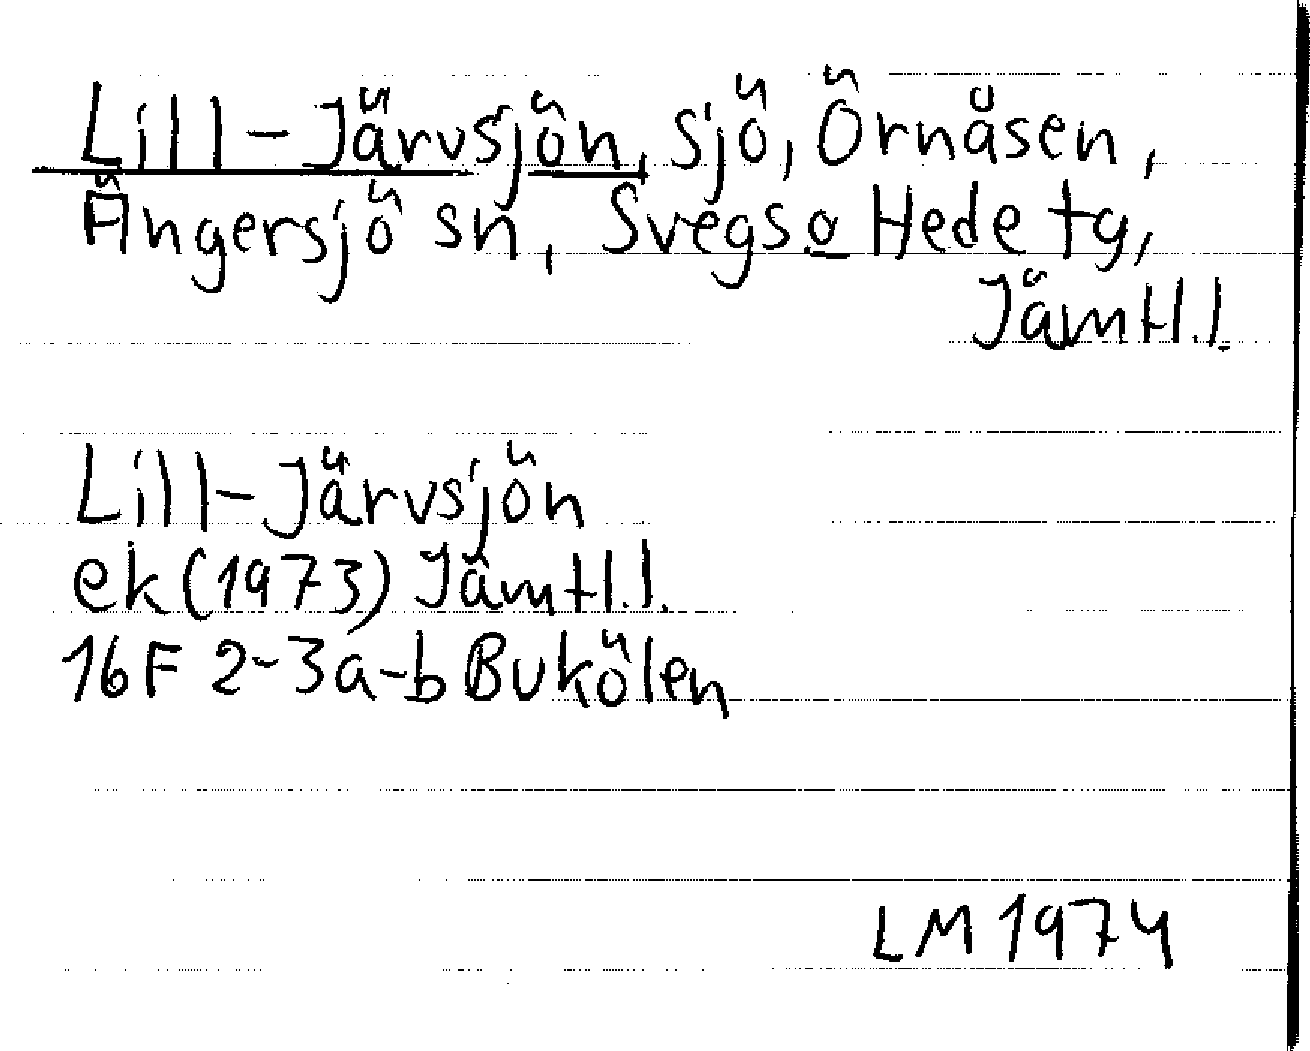 Lill-Järvsjön, sjö, Örnåsen,
Ängersjö sn, Svegs o Hede tg,
Jämtl.l.
Lill-Järvsjön
ek (1973) Jämtl.l.
16F 2-3a-b Bukölen
LM 1974